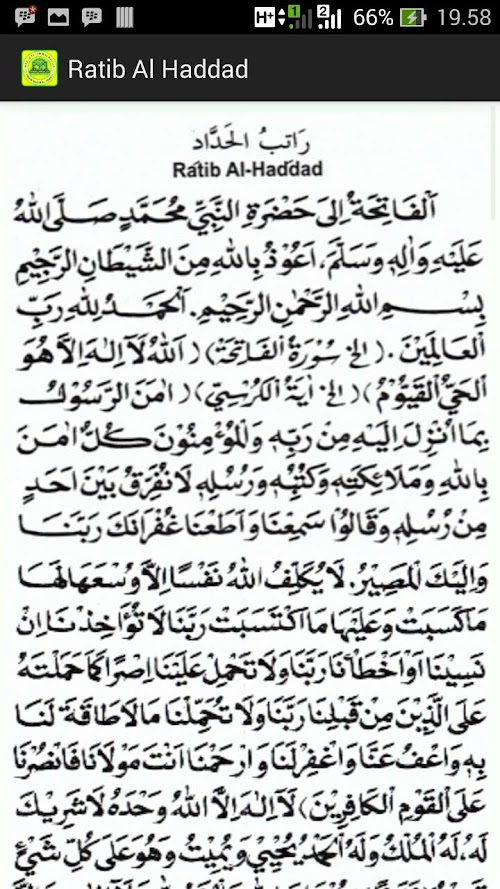 66% 19.58
Ratib Al Haddad
رَاتِبُ الْحَدَّادِ
Ratib Al-Haddad
اَلْفَاتِحَةُ اِلَى حَضْرَةِ النَّبِيِّ مُحَمَّدٍ صَلَّى اللهُ
عَلَيْهِ وَاٰلِهِ وَسَلَّمَ، اَعُوْذُ بِاللهِ مِنَ الشَّيْطَانِ الرَّجِيْمِ
بِسْمِ اللهِ الرَّحْمٰنِ الرَّحِيْمِ. اَلْحَمْدُ لِلّٰهِ رَبِّ
الْعَالَمِيْنَ. (الخ سُوْرَةُ الْفَاتِحَةْ) ( اَللهُ لَآ اِلٰهَ اِلَّا هُوَ
الْحَيُّ الْقَيُّوْمُ ) ( الخ اٰيَةُ الْكُرْسِيّ ) ( اٰمَنَ الرَّسُوْلُ
بِمَا اُنْزِلَ اِلَيْهِ مِنْ رَبِّهِ وَالْمُؤْمِنُوْنَ كُلٌّ اٰمَنَ
بِاللهِ وَمَلَائِكَتِهِ وَكُتُبِهِ وَرُسُلِهِ لَا نُفَرِّقُ بَيْنَ اَحَدٍ
مِنْ رُسُلِهِ وَقَالُوْا سَمِعْنَا وَاَطَعْنَا غُفْرَانَكَ رَبَّنَا
وَاِلَيْكَ الْمَصِيْرُ. لَا يُكَلِّفُ اللهُ نَفْسًا اِلَّا وُسْعَهَا لَهَا
مَا كَسَبَتْ وَعَلَيْهَا مَا اكْتَسَبَتْ رَبَّنَا لَا تُؤَاخِذْنَا اِنْ
نَسِيْنَا اَوْ اَخْطَأْنَا رَبَّنَا وَلَا تَحْمِلْ عَلَيْنَا اِصْرًا كَمَا حَمَلْتَهُ
عَلَى الَّذِيْنَ مِنْ قَبْلِنَا رَبَّنَا وَلَا تُحَمِّلْنَا مَا لَا طَاقَةَ لَنَا
بِهِ وَاعْفُ عَنَّا وَاغْفِرْ لَنَا وَارْحَمْنَا اَنْتَ مَوْلَانَا فَانْصُرْنَا
عَلَى الْقَوْمِ الْكَافِرِيْنَ) لَآ اِلٰهَ اِلَّا اللهُ وَحْدَهُ لَا شَرِيْكَ
لَهُ، لَهُ الْمُلْكُ وَلَهُ الْحَمْدُ يُحْيِيْ وَيُمِيْتُ وَهُوَ عَلَى كُلِّ شَيْءٍ